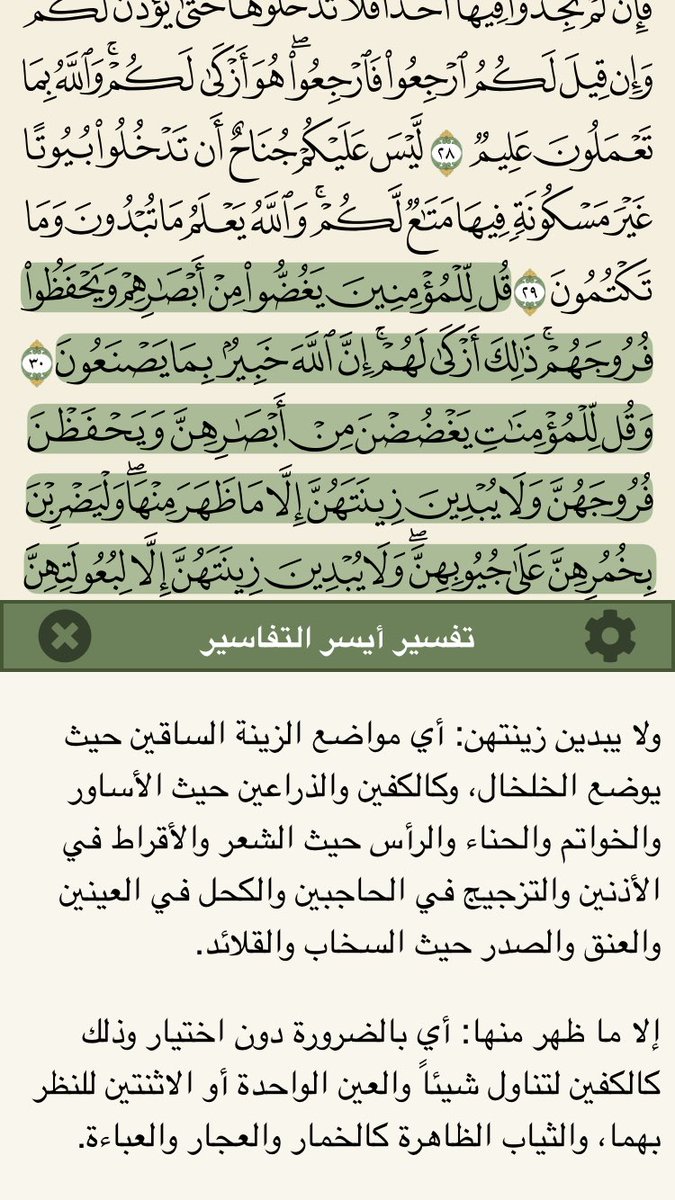 فَإِن لَّمْ تَجِدُوا۟ فِيهَآ أَحَدًا فَلَا تَدْخُلُوهَا حَتَّىٰ يُؤْذَنَ لَكُمْ
وَإِن قِيلَ لَكُمُ ٱرْجِعُوا۟ فَٱرْجِعُوا۟ۖ هُوَ أَزْكَىٰ لَكُمْۚ وَٱللَّهُ بِمَا
تَعْمَلُونَ عَلِيمٌ ٢٨ لَّيْسَ عَلَيْكُمْ جُنَاحٌ أَن تَدْخُلُوا۟ بُيُوتًا
غَيْرَ مَسْكُونَةٍ فِيهَا مَتَٰعٌ لَّكُمْۚ وَٱللَّهُ يَعْلَمُ مَا تُبْدُونَ وَمَا
تَكْتُمُونَ ٢٩ قُل لِّلْمُؤْمِنِينَ يَغُضُّوا۟ مِنْ أَبْصَٰرِهِمْ وَيَحْفَظُوا۟
فُرُوجَهُمْۚ ذَٰلِكَ أَزْكَىٰ لَهُمْۚ إِنَّ ٱللَّهَ خَبِيرٌۢ بِمَا يَصْنَعُونَ ٣٠
وَقُل لِّلْمُؤْمِنَٰتِ يَغْضُضْنَ مِنْ أَبْصَٰرِهِنَّ وَيَحْفَظْنَ
فُرُوجَهُنَّ وَلَا يُبْدِينَ زِينَتَهُنَّ إِلَّا مَا ظَهَرَ مِنْهَاۖ وَلْيَضْرِبْنَ
بِخُمُرِهِنَّ عَلَىٰ جُيُوبِهِنَّۖ وَلَا يُبْدِينَ زِينَتَهُنَّ إِلَّا لِبُعُولَتِهِنَّ
تفسير أيسر التفاسير
ولا يبدين زينتهن: أي مواضع الزينة الساقين حيث
يوضع الخلخال، وكالكفين والذراعين حيث الأساور
والخواتم والحناء والرأس حيث الشعر والأقراط في
الأذنين والتزجيج في الحاجبين والكحل في العينين
والعنق والصدر حيث السخاب والقلائد.
إلا ما ظهر منها: أي بالضرورة دون اختيار وذلك
كالكفين لتناول شيئاً والعين الواحدة أو الاثنتين للنظر
بهما، والثياب الظاهرة كالخمار والعجار والعباءة.